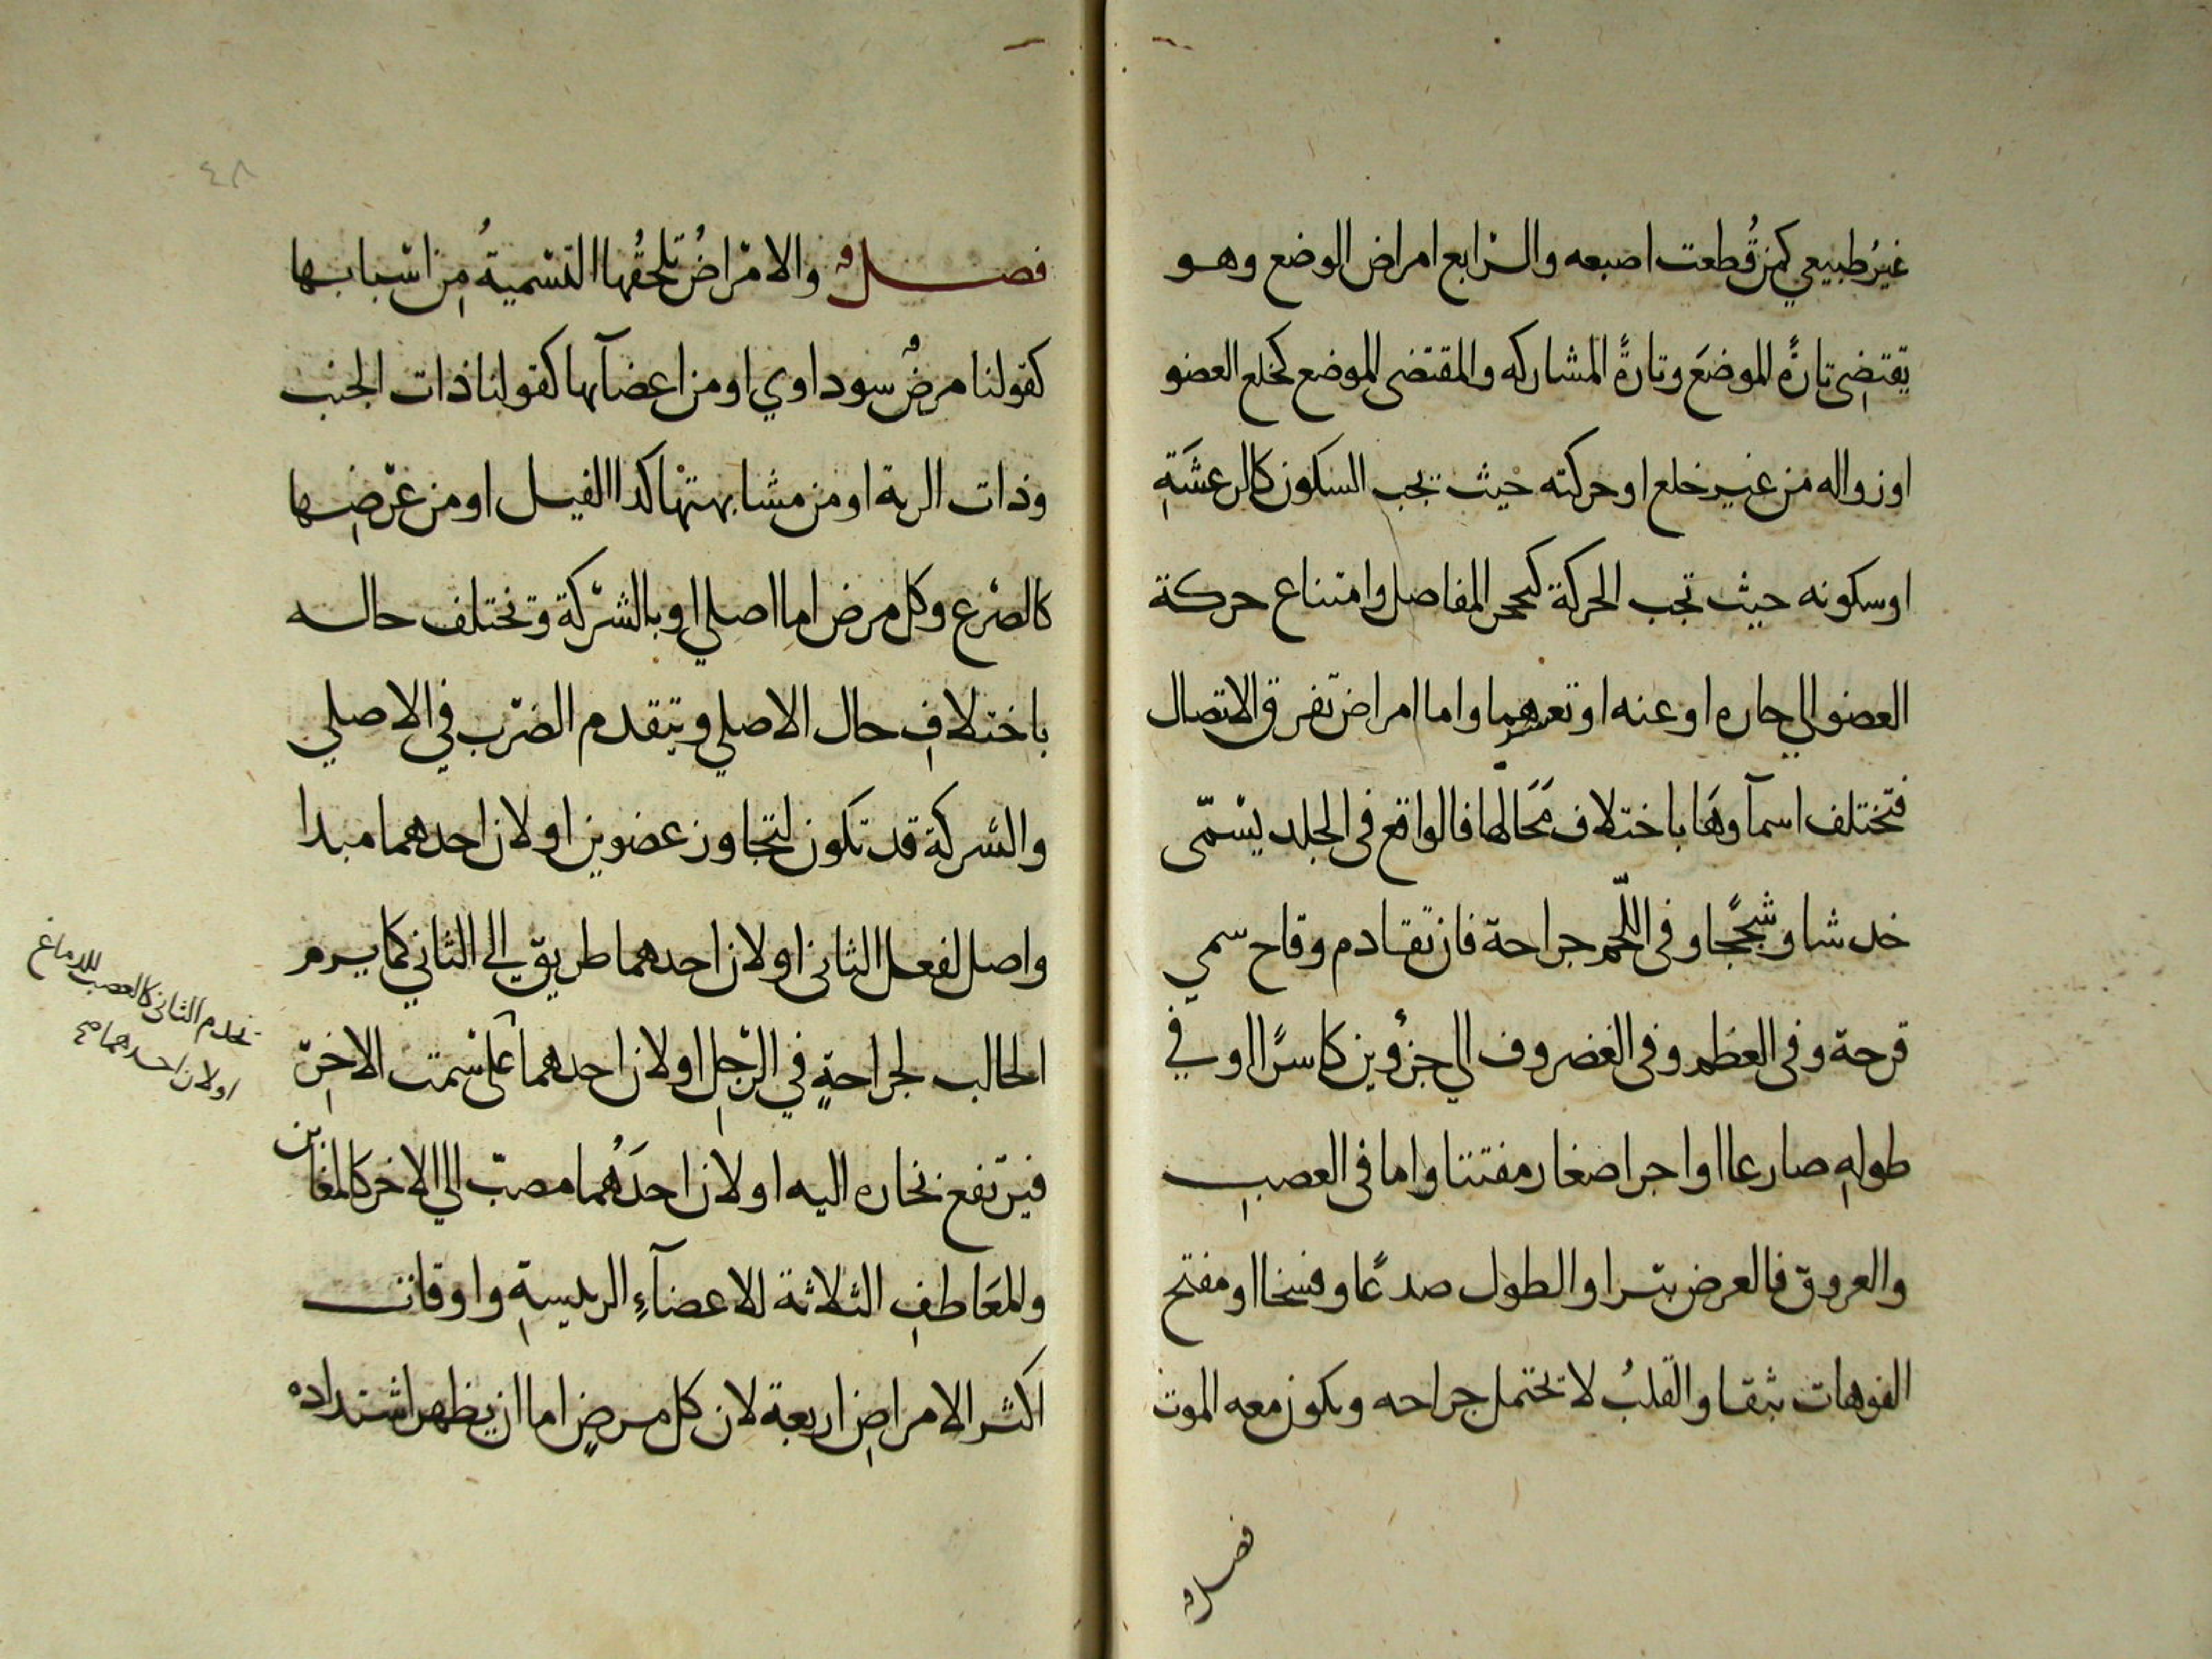 غيرُ طبيعي كمن قُطعت اصبعه والرابع امراض الوضع وهو
يقتضي تارةً الموضعَ وتارةً المشاركه والمقتضى الموضع كخلع العضو
او زواله من غير خلع او حركته حيث يجب السكون كالرعشَةِ
او سكونه حيث تجب الحركة كتحجر المفاصل وامتناع حركة
العضو الي جاره او عنه او تعسرهما واما امراض تفرق الاتصال
فتختلف اسمآوهَا باختلاف مَحَالها فالواقع في الجلد يسْمّى
خدشا وشججًا وفي اللّحم جراحة فان تقادم وقاح سمي
قرحة وفي العظم وفي الغضروف الي جزؤين كاسرًا او في
طولهِ صارعا او اجرا صغار مفتتا واما في العصبِ
والعروق فالعرض بترا والطول صدعًا وفسخا او مفتح
الفوهات بثقا والقلبُ لا يحتمل جراحه ويكون معه الموت
فصل
٤٨
فصل والامْراضُ تلحقُها التسْميةُ مِن اسْبابها
كقولنا مرضٌ سوداوي او من اعضآيها كقولنا ذات الجنب
وذات الرية او من مشابهتها كدا الفيل او من عرْضِها
كالصْرع وكل مرض اما اصلي او بالشركة وتختلف حاله
باختلافِ حال الاصلي ويتقدم الضرب في الاصلي
والشركة قد تكون لتجاور عضوين او لان احدهما مبدا
واصل لفعل الثاني او لان احدهما طريق الى الثاني كما يرم
الحالب لجراحةٍ في الرْجلِ او لان احدهما على سْمت الاخِر
فيرتفع بخاره اليه او لان احدَهُما مصبّ الي الاخر كالمغابن
والمعَاطفِ الثلاثة للاعضآءِ الرييسةِ واوقات
اكثر الامراضِ اربعة لان كل مرضٍ اما ان يظهر اشتداده
يخدم الثاني كالعصب للدماغ
او لان احدهما صح